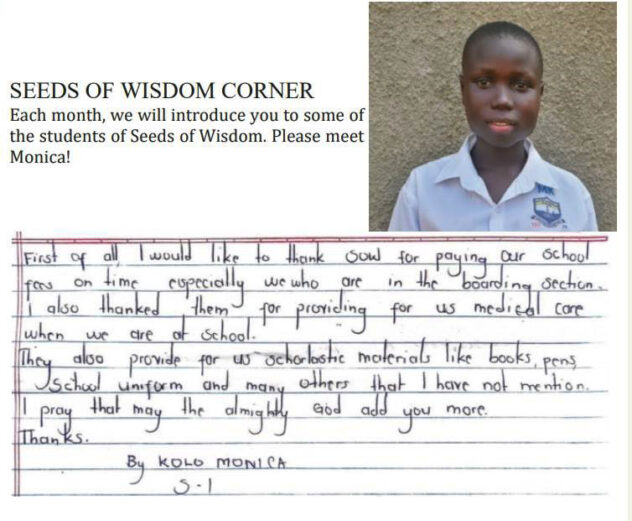 SEEDS OF WISDOM CORNER
Each month, we will introduce you to some of
the students of Seeds of Wisdom. Please meet
Monica!
MK
First of all, I would like to thank SOW for paying our school
fees on time especially we who are in the boarding section.
I also thanked them for providing for us medical care
when we are at school.
They also provide for us scholastic materials like books, pens
School uniform and many others that I have not mention.
I pray that may the almighty God add you more.
Thanks.
By KOLO MONICA
S-1